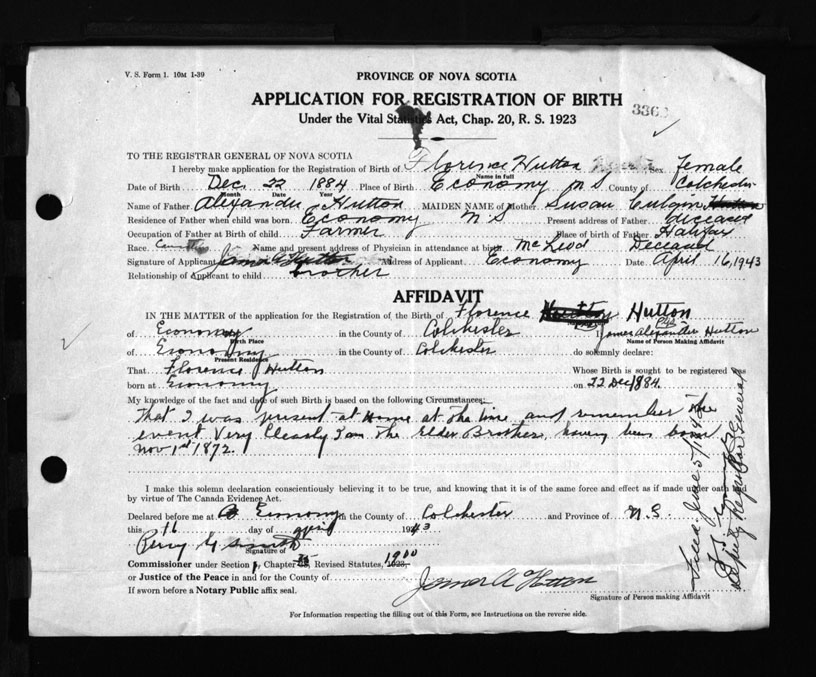 V. S. Form 1. 10M 1-39
PROVINCE OF NOVA SCOTIA
APPLICATION FOR REGISTRATION OF BIRTH
Under the Vital Statistics Act, Chap. 20, R. S. 1923
TO THE REGISTRAR GENERAL OF NOVA SCOTIA
I hereby make application for the Registration of Birth of Florence Hutton Sex Female
Name in full
Date of Birth Dec 22 1884 Place of Birth Economy N S County of Colchester
Month Date Year
Name of Father Alexander Hutton MAIDEN NAME of Mother Susan
Residence of Father when child was born Economy N S Present address of Father deceased
Occupation of Father at Birth of child Farmer Place of Birth of Father Halifax
Race Name and present address of Physician in attendance at birth McLeod Deceased
Signature of Applicant James A Hutton Address of Applicant Economy Date April 16, 1943
Relationship of Applicant to child brother
AFFIDAVIT
IN THE MATTER of the application for the Registration of the Birth of Florence Hutton
of Economy in the County of Colchester I James Alexander Hutton
Birth Place Name of Person Making Affidavit
of Economy in the County of Colchester do solemnly declare:
Present Residence
That Florence Hutton Whose Birth is sought to be registered was
born at Economy on 22 Dec 1884.
My knowledge of the fact and date of such Birth is based on the following Circumstances:
That I was present at Home at the time and remember the
event Very Clearly I am the Elder Brother having been born
Nov 1st 1872.
I make this solemn declaration conscientiously believing it to be true, and knowing that it is of the same force and effect as if made under oath and
by virtue of The Canada Evidence Act.
Declared before me at Economy in the County of Colchester and Province of N.S.
this 16 day of April 1943
Percy G Smith
Signature of
Commissioner under Section 1, Chapter Revised Statutes, 1923. 1900
or Justice of the Peace in and for the County of
If sworn before a Notary Public affix seal.
James A Hutton
Signature of Person making Affidavit
For Information respecting the filling out of this Form, see Instructions on the reverse side.
June 5/1943
Deputy Registrar General